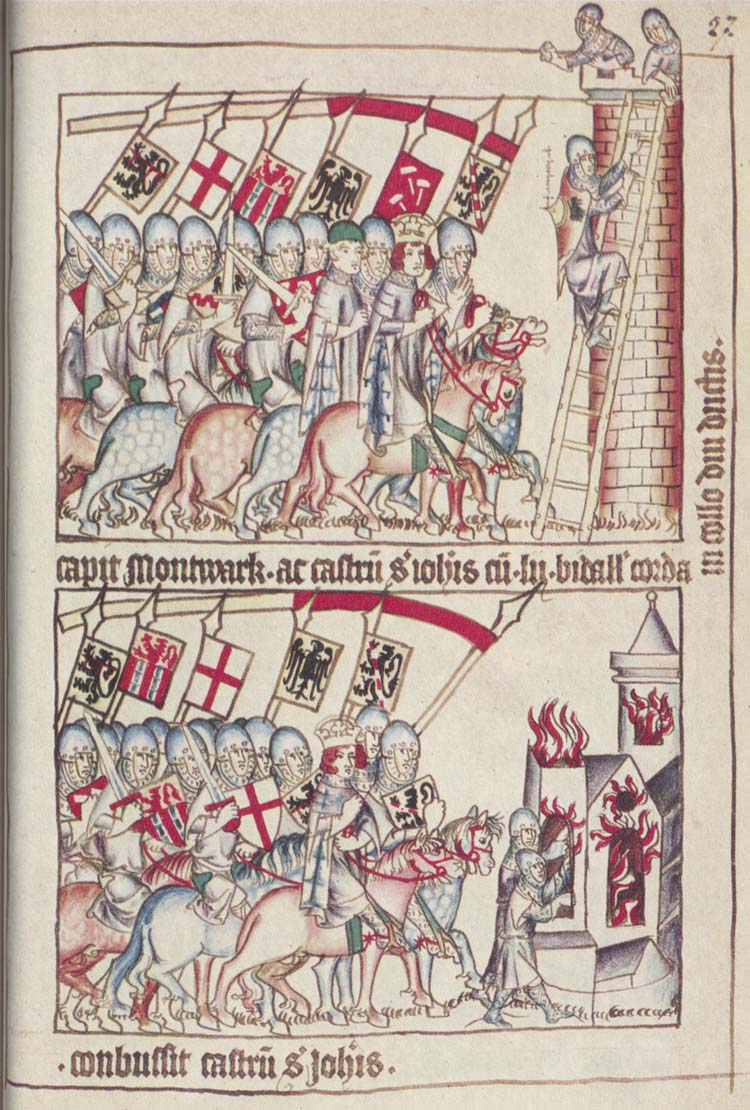 27
capit Montwark · ac castrū s̄ ioħis cū · lij · vidall' corda
in collo dni ducis ·
· conbussit castrū s̄ Joħis ·